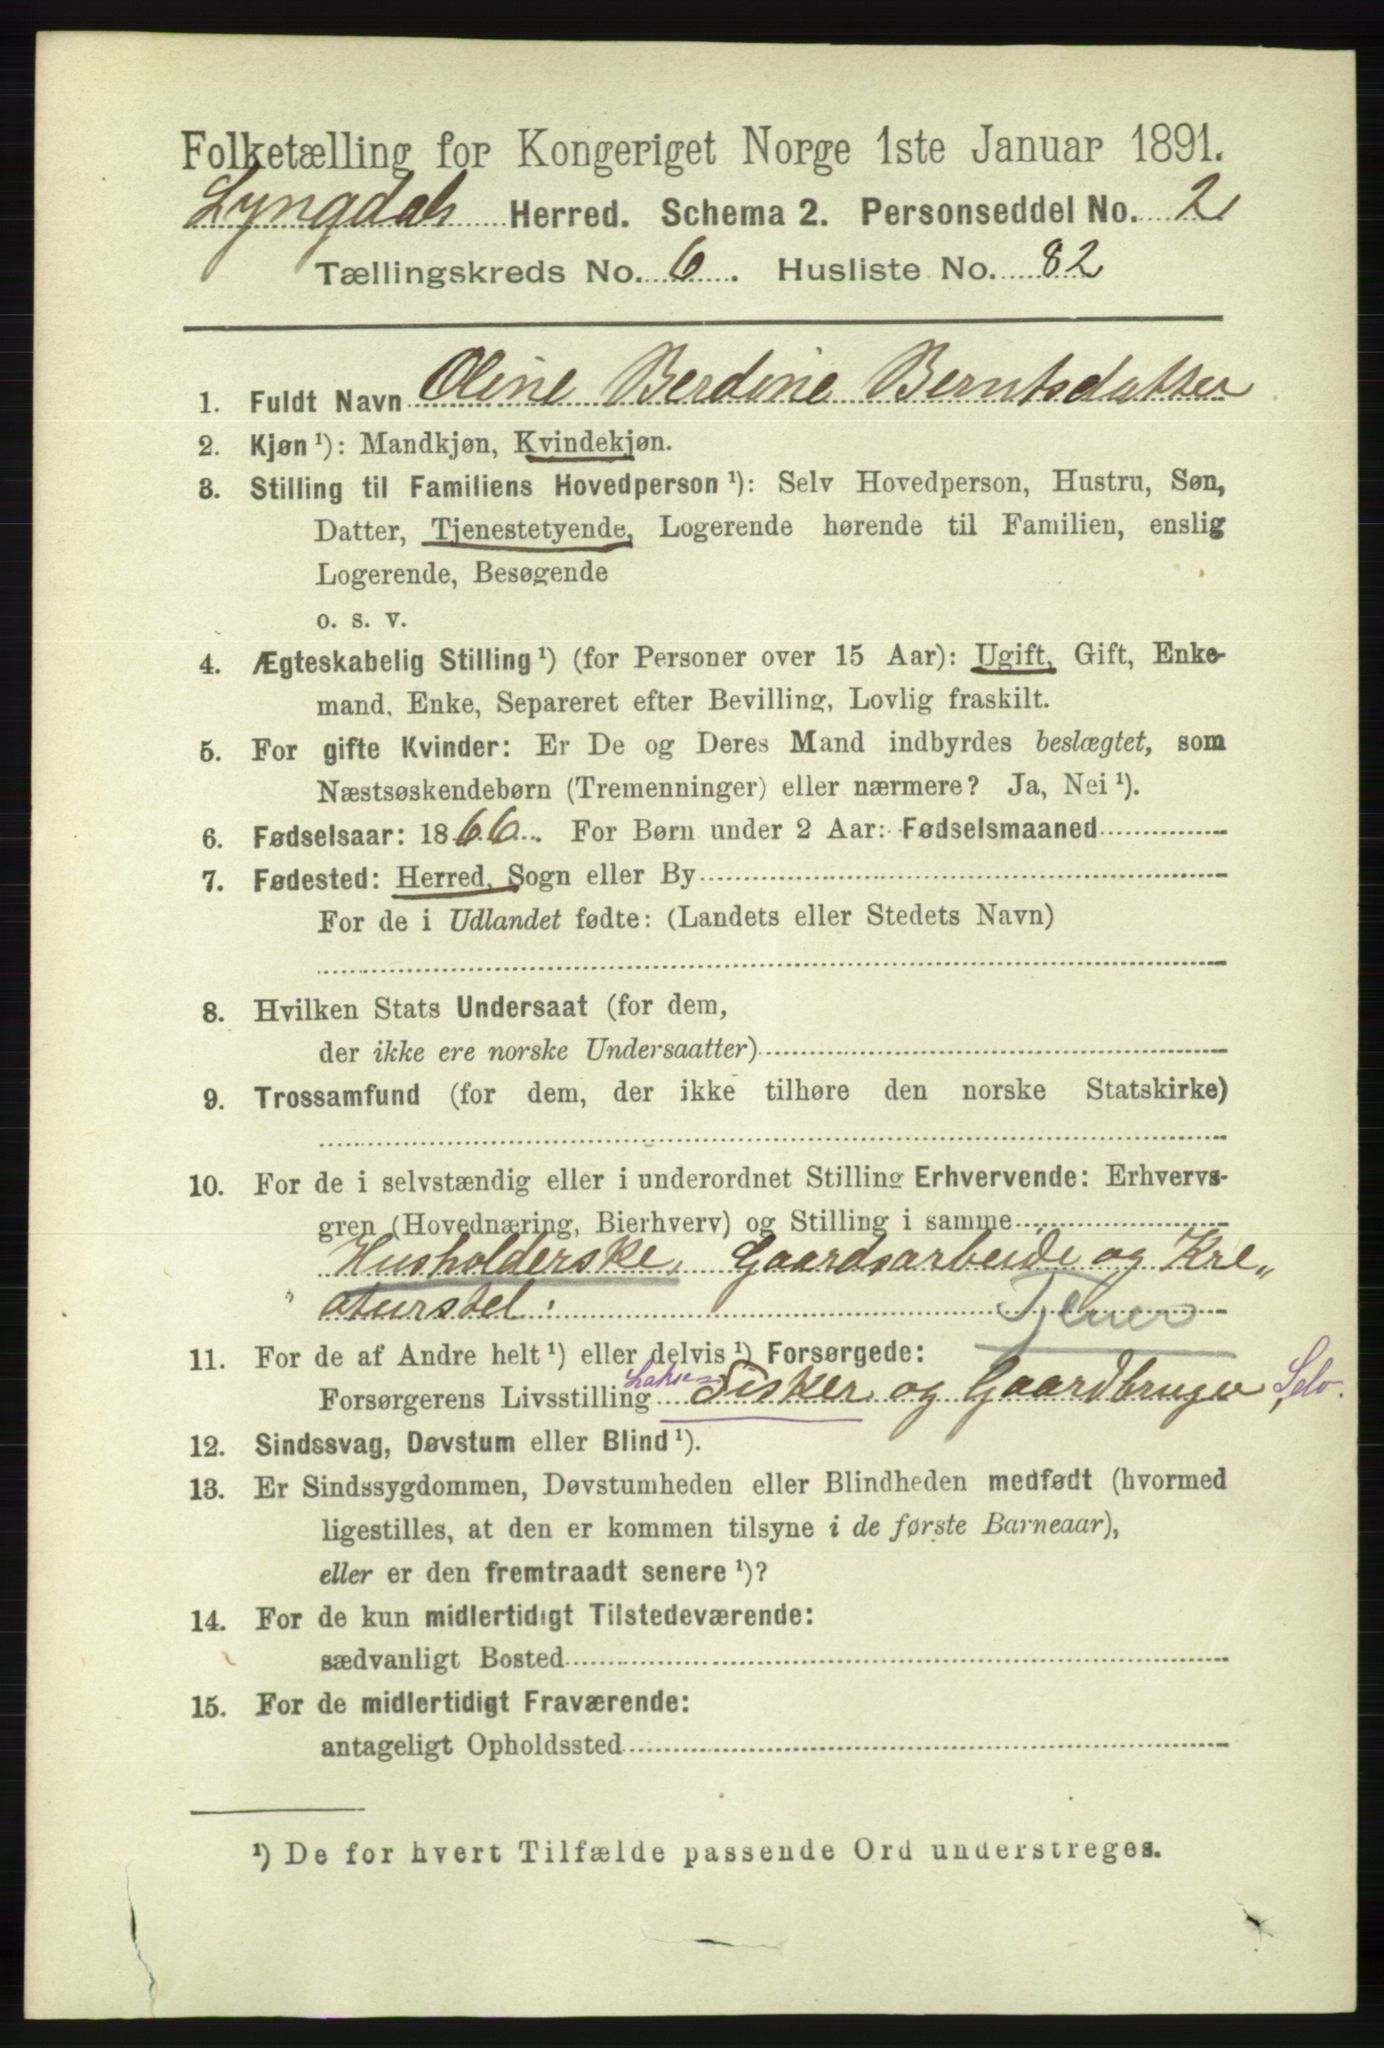 Folketælling for Kongeriget Norge 1ste Januar 1891.
Lyngdals Herred. Schema 2. Personseddel No. 2
Tællingskreds No. 6. Husliste No. 82
1. Fuldt Navn Oline Berdine Berntsdatter
2. Kjøn ¹): Mandkjøn, Kvindekjøn.
3. Stilling til Familiens Hovedperson ¹): Selv Hovedperson, Hustru, Søn,
Datter, Tjenestetyende, Logerende hørende til Familien, enslig
Logerende, Besøgende
o. s. v.
4. Ægteskabelig Stilling ¹) (for Personer over 15 Aar): Ugift, Gift, Enke-
mand, Enke, Separeret efter Bevilling, Lovlig fraskilt.
5. For gifte Kvinder: Er De og Deres Mand indbyrdes beslægtet, som
Næstsøskendebørn (Tremenninger) eller nærmere? Ja, Nei ¹).
6. Fødselsaar: 1866. For Børn under 2 Aar: Fødselsmaaned
7. Fødested: Herred, Sogn eller By
For de i Udlandet fødte: (Landets eller Stedets Navn)
8. Hvilken Stats Undersaat (for dem,
der ikke ere norske Undersaatter)
9. Trossamfund (for dem, der ikke tilhøre den norske Statskirke)
10. For de i selvstændig eller i underordnet Stilling Erhvervende: Erhvervs-
gren (Hovednæring, Bierhverv) og Stilling i samme
Husholderske, Gaardsarbeide og Kre„
aturstel. Tjener
11. For de af Andre helt ¹) eller delvis ¹) Forsørgede:
Forsørgerens Livsstilling Lakse= Fisker og Gaardbruger, Selv.
12. Sindssvag, Døvstum eller Blind ¹).
13. Er Sindssygdommen, Døvstumheden eller Blindheden medfødt (hvormed
ligestilles, at den er kommen tilsyne i de første Barneaar),
eller er den fremtraadt senere ¹)?
14. For de kun midlertidigt Tilstedeværende:
sædvanligt Bosted
15. For de midlertidigt Fraværende:
antageligt Opholdssted
¹) De for hvert Tilfælde passende Ord understreges.